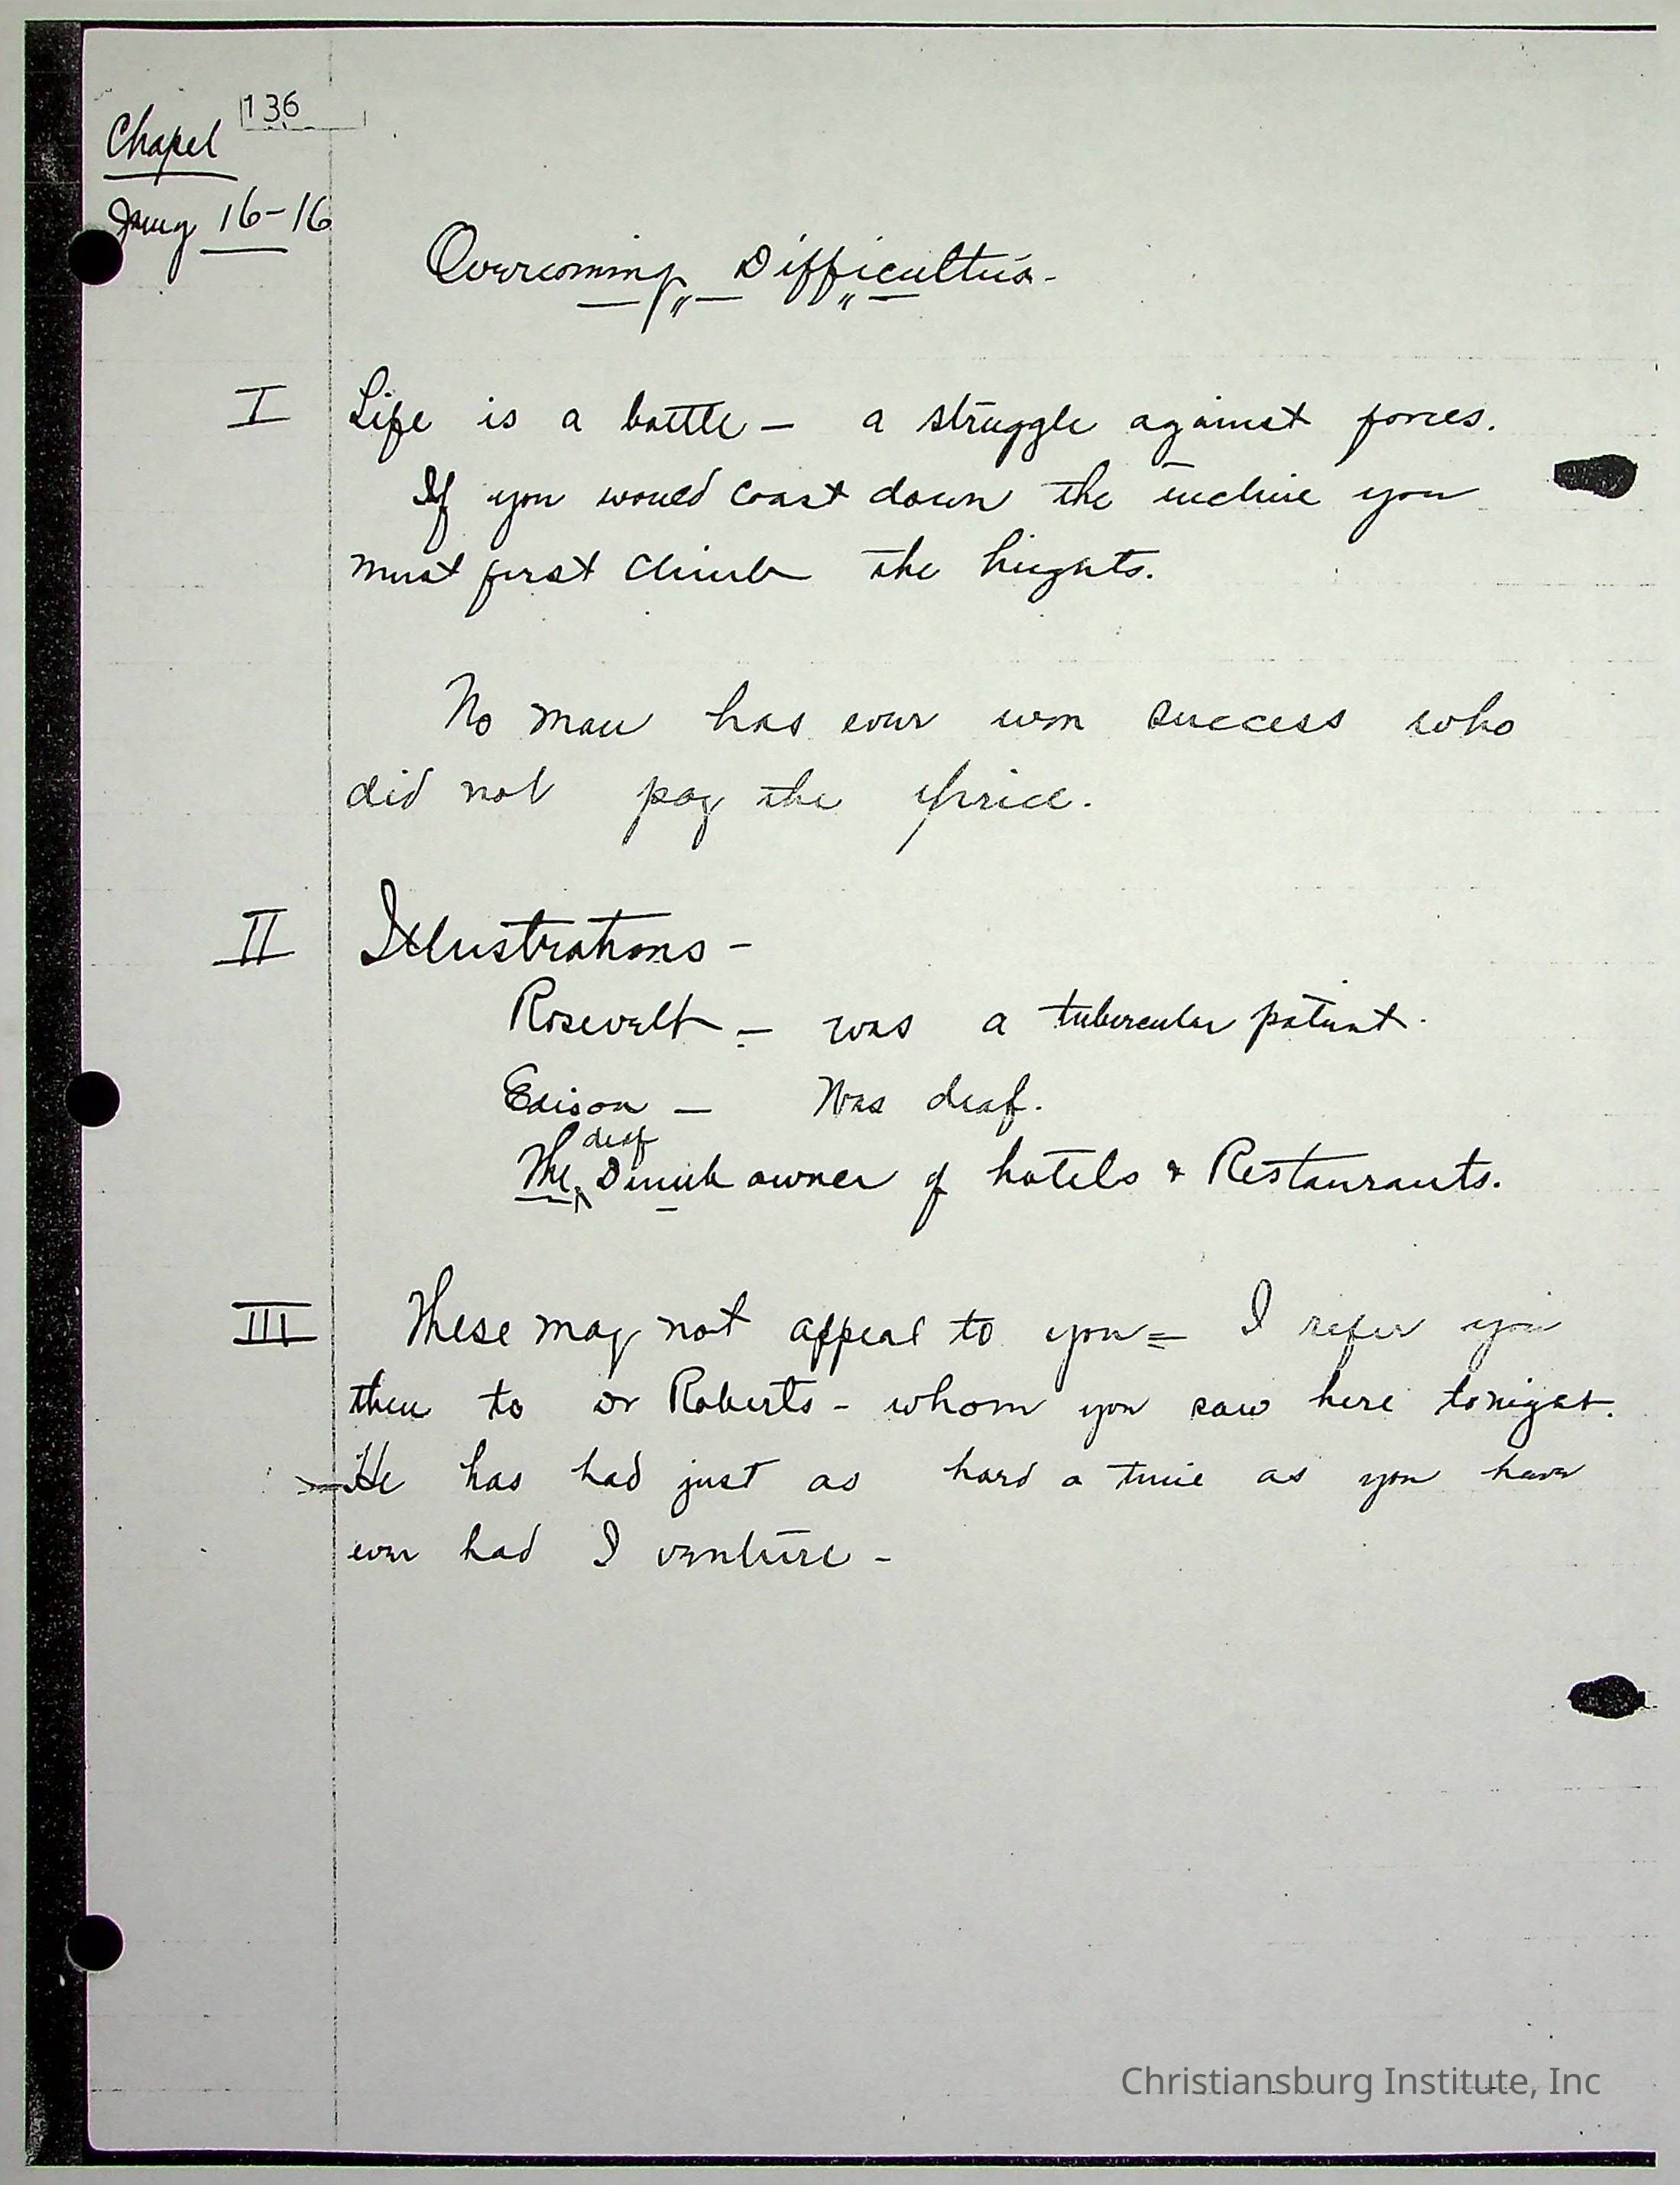 136
Chapel
Jany 16-16
Overcoming Difficulties-
I Life is a battle - a struggle against forces.
If you would coast down the incline you
must first climb the hights.
No man has ever won success who
did not pay the price.
II Illustrations -
Rosevelt - was a tubercular patient.
Edison - Was deaf.
deaf
The Dumb owner of hotels & Restaurants.
III These may not appeal to you = I refer you
then to Dr Roberts - whom you saw here tonight.
He has had just as hard a time as you have
ever had I venture -
Christiansburg Institute, Inc